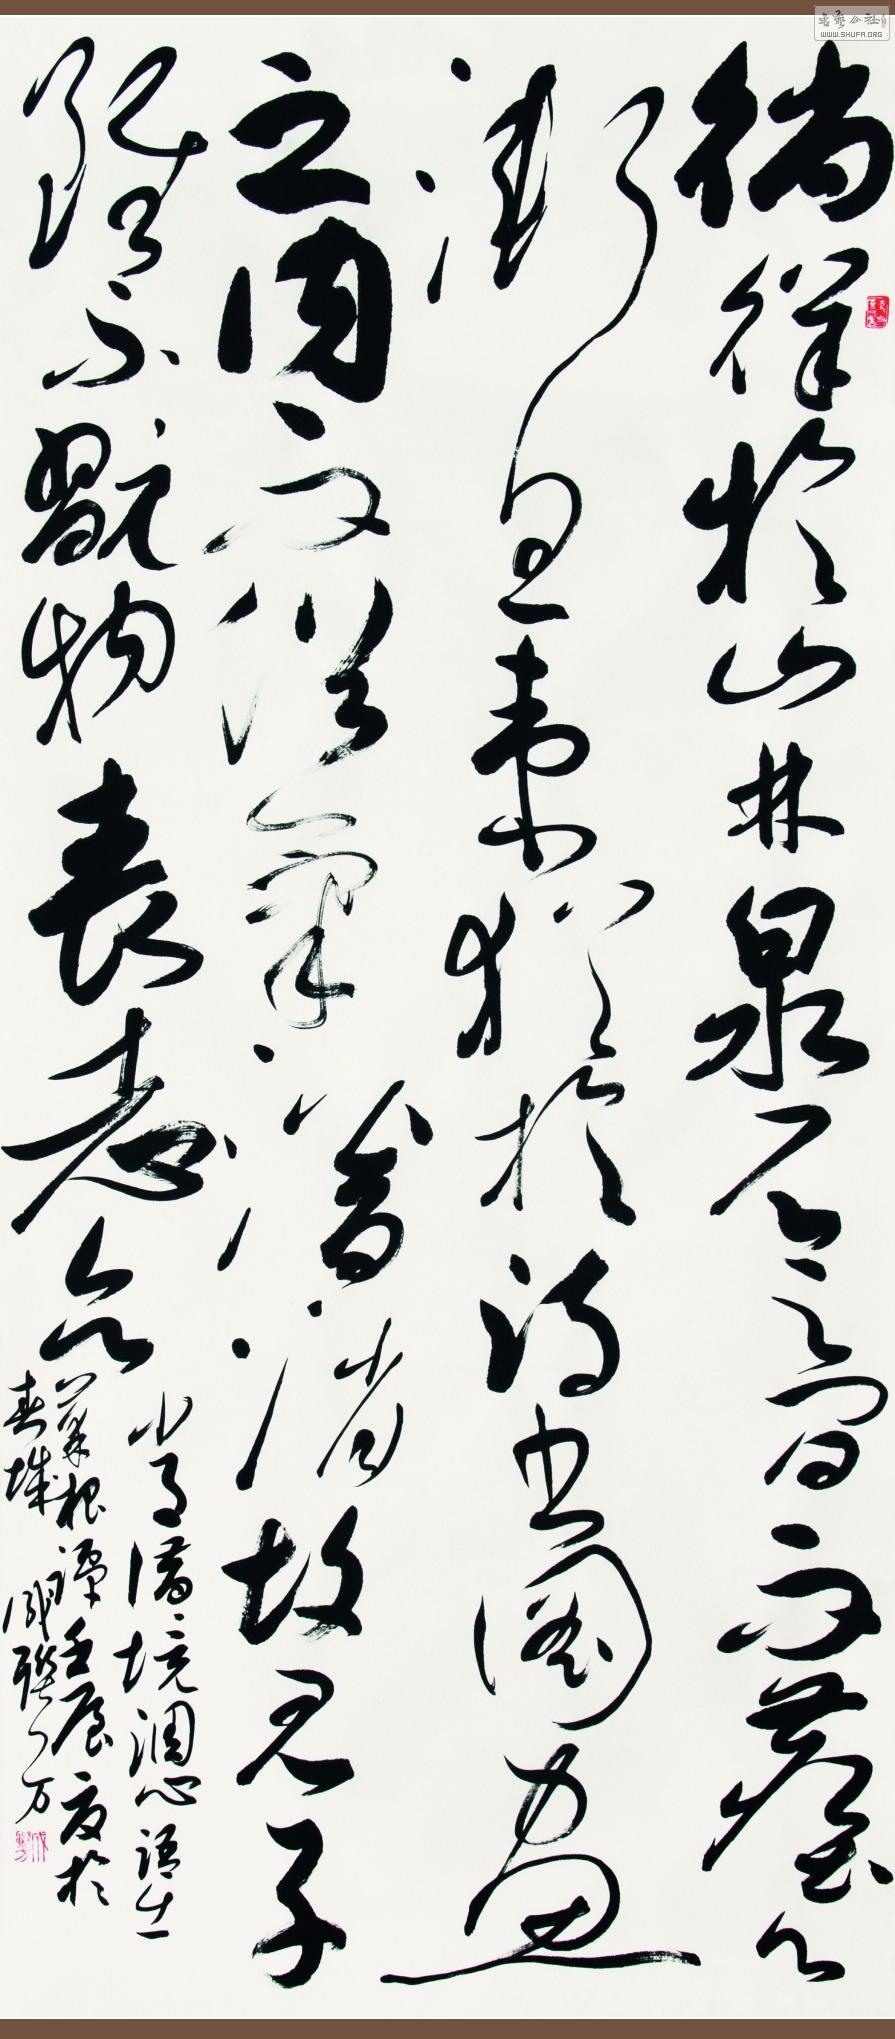 徜徉於山林泉石之間而塵心
漸息夷猶於詩書圖畫
之内而俗氣潛消故君子
雖不翫物喪志亦
常借境調心語出
菜根譚壬辰夏於
春城成聯方
书艺公社
WWW.SHUFA.ORG